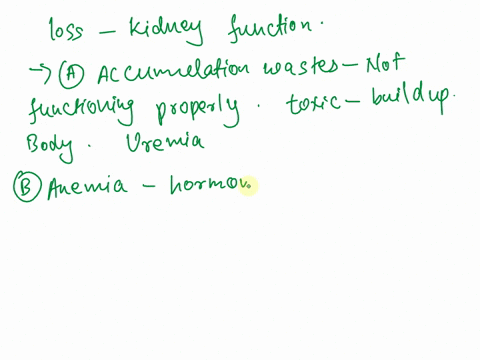 loss - Kidney function.
→ (A) Accumulation wastes - Not
functioning properly. toxic - buildup.
Body. Uremia
(B) Anemia - hormon